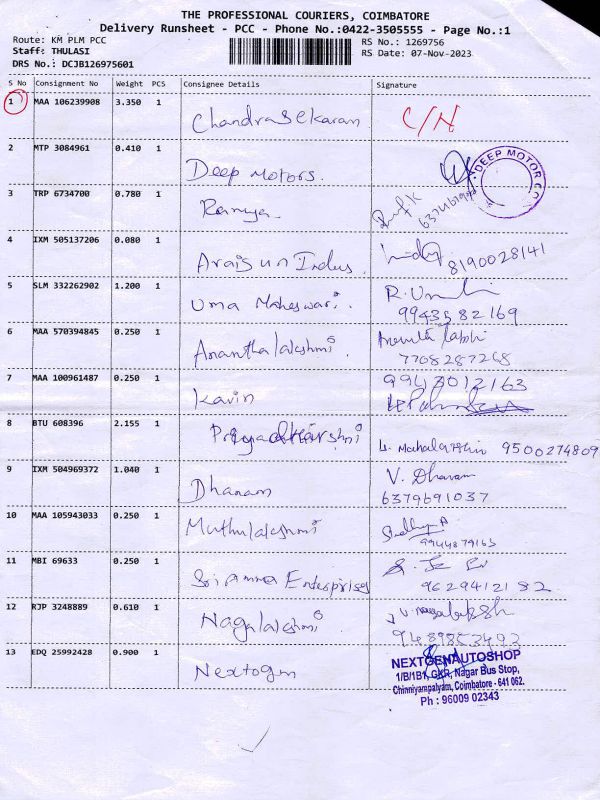 THE PROFESSIONAL COURIERS, COIMBATORE
Delivery Runsheet - PCC - Phone No.:0422-3505555 - Page No.:1
Route: KM PLM PCC
RS No.: 1269756
Staff: THULASI
RS Date: 07-Nov-2023
DRS No.: DCJB126975601
S No Consignment No Weight PCS Consignee Details Signature
1 MAA 106239908 3.350 1 Chandrasekaran C/N
2 MTP 3084961 0.410 1 Deep Motors.
DEEP MOTOR CO.
3 TRP 6734700 0.780 1 Ramya
4 IXM 505137206 0.080 1 Araisun Indus.
8190028141
5 SLM 332262902 1.200 1 Uma Maheswari. R. Uma
9943582169
6 MAA 570394845 0.250 1 Ananthalakshmi.
7708287268
7 MAA 100961487 0.250 1 Kavin 9943012163
8 BTU 608396 2.155 1 Priyadharshni 9500274809
9 IXM 504969372 1.040 1 Dhanam V. Dhanam
6379691037
10 MAA 105943033 0.250 1 Muthulakshmi
9944879165
11 MBI 69633 0.250 1 Sri Amma Enterprises
9629412182
12 RJP 3248889 0.610 1 Nagalakshmi
9489853492
13 EDQ 25992428 0.900 1 Nextogen
NEXTGENAUTOSHOP
1/B/1B1, GKR, Nagar Bus Stop,
Chinniyampalyam, Coimbatore - 641 062.
Ph : 96009 02343